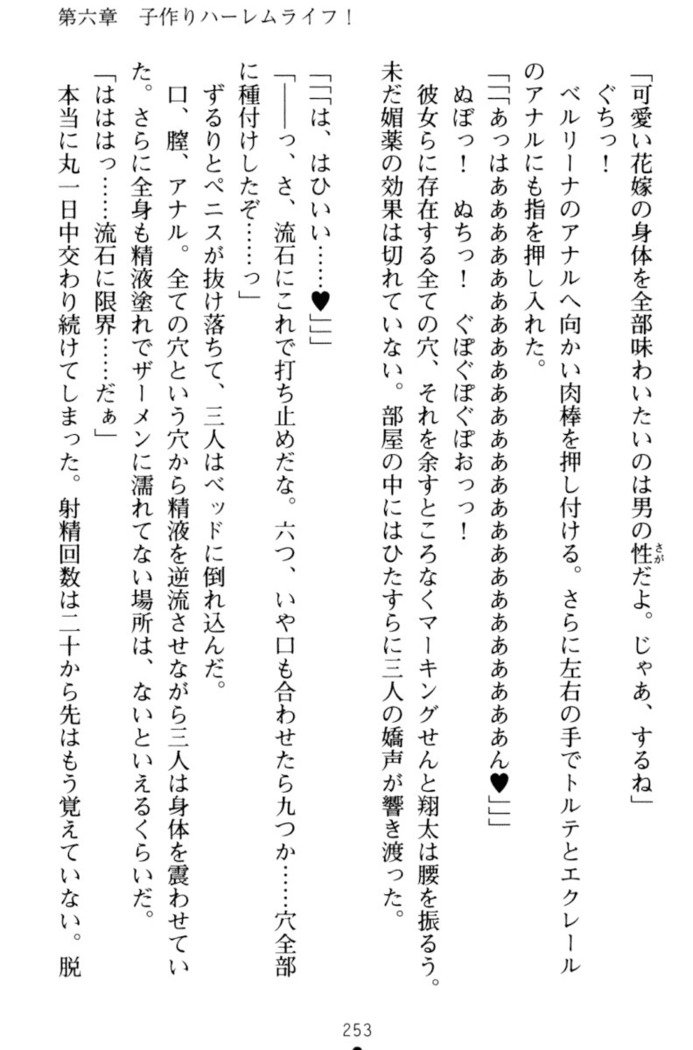 第六章　子作りハーレムライフ！
「可愛い花嫁の身体を全部味わいたいのは男の性だよ。じゃあ、するね」
さが
ぐちっ！
ベルリーナのアナルへ向かい肉棒を押し付ける。さらに左右の手でトルテとエクレール
のアナルにも指を押し入れた。
「「「あっはああああああああああああああああああああああああああああん♥」」」
ぬぽっ！　ぬちっ！　ぐぽぐぽぐぽおっっ！
彼女らに存在する全ての穴、それを余すところなくマーキングせんと翔太は腰を振るう。
未だ媚薬の効果は切れていない。部屋の中にはひたすらに三人の嬌声が響き渡った。
「「「は、はひいい……♥」」」
「――っ、さ、流石にこれで打ち止めだな。六つ、いや口も合わせたら九つか……穴全部
に種付けしたぞ……っ」
ずるりとペニスが抜け落ちて、三人はベッドに倒れ込んだ。
口、膣、アナル。全ての穴という穴から精液を逆流させながら三人は身体を震わせてい
た。さらに全身も精液塗れでザーメンに濡れてない場所は、ないといえるくらいだ。
「はははっ……流石に限界……だぁ」
本当に丸一日中交わり続けてしまった。射精回数は二十から先はもう覚えていない。脱
253